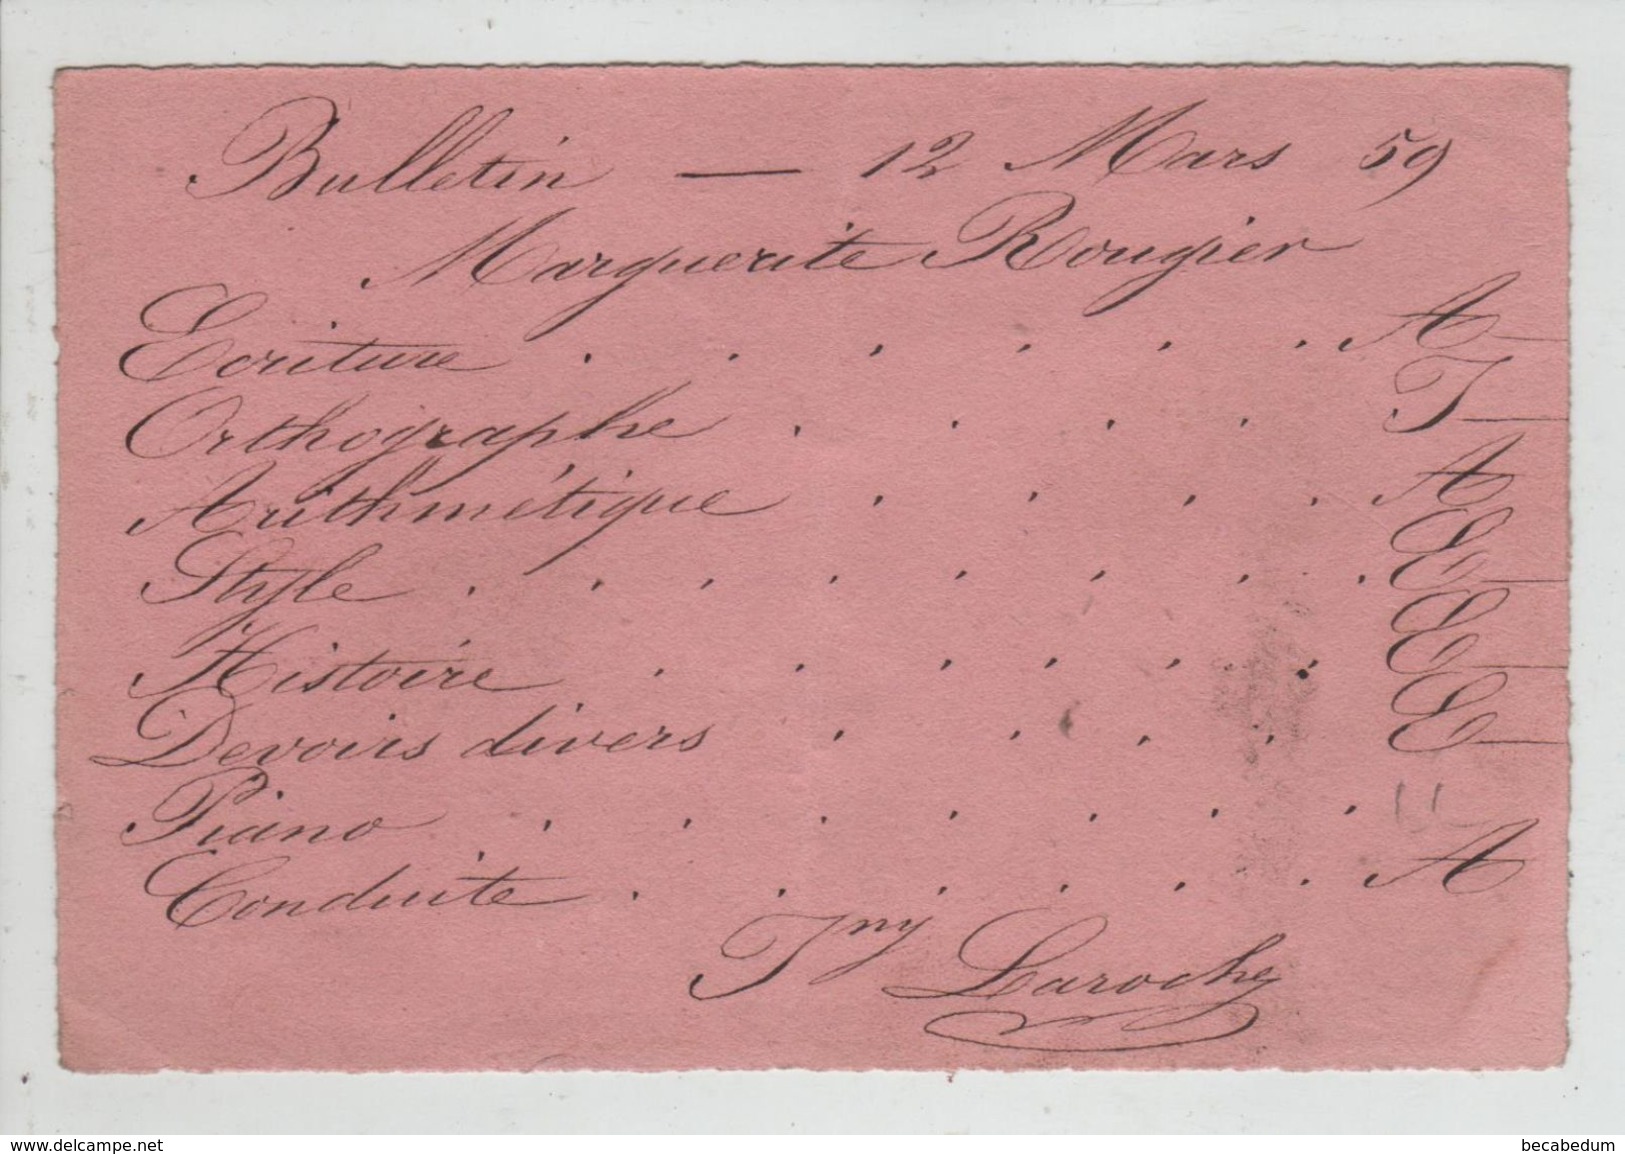 Bulletin — 12 Mars 59
Marguerite Rougier
Ecriture . . . . . . A—
Orthographe . . . . T—
Arithmétique . . . . A
Style . . . . . . . . E—
Histoire . . . . . . E—
Devoirs divers . . . . E—
Piano . . . . . . .
Conduite . . . . . . A
Laroche
www.delcampe.net
becabedum